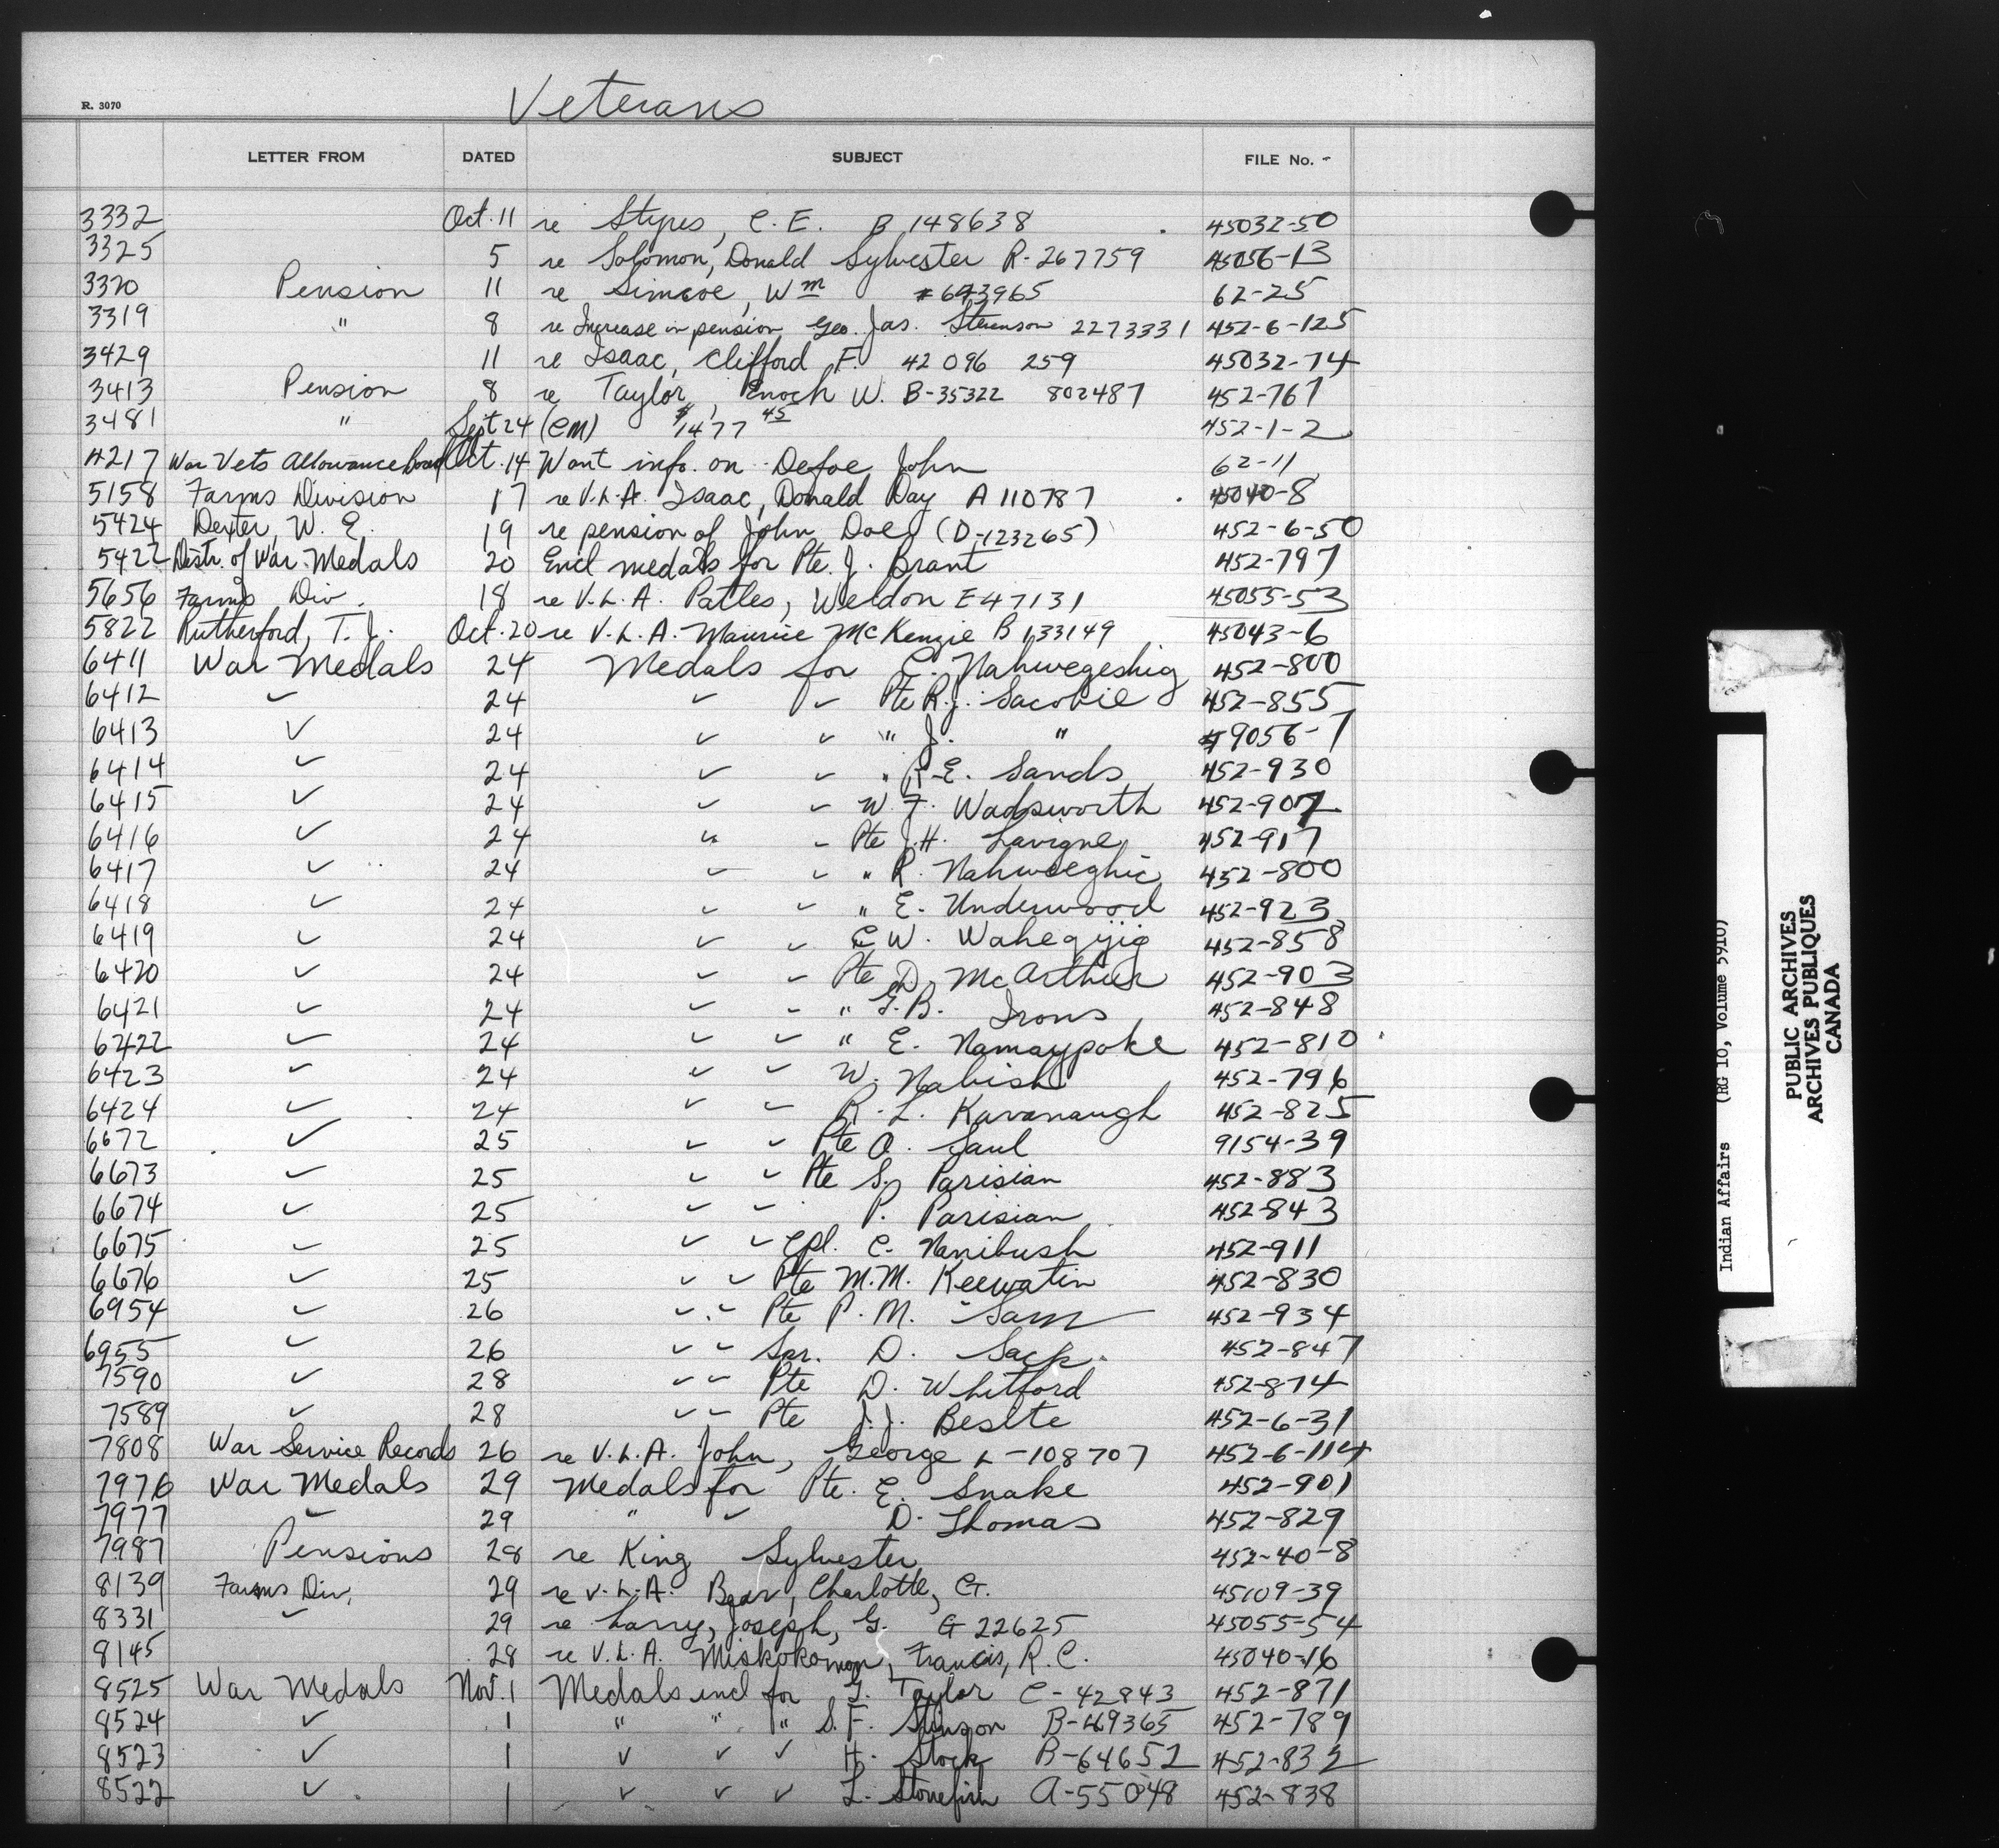 Veterans
R. 3070
LETTER FROM DATED SUBJECT FILE No.
3332 Oct. 11 re Stypes, C. E. B 148638 45032-50
3325 5 re Solomon, Donald Sylvester R-267759 45056-13
3320 Pension 11 re Simcoe, Wm 62-25
3319 " 8 re Increase in pension Geo. Jas. Stevenson 2273331 452-6-125
3429 11 re Isaac, Clifford F. 42096 259 45032-74
3413 Pension 8 re Taylor, Enoch W. B-35322 802487 452-767
3481 " Sept 24 (CM) $1477 45 452-1-2
4217 War Vets Allowance Board Oct. 14 Want info. on Defoe, John 62-11
5158 Farms Division 17 re V.L.A. Isaac, Donald Day A 110787 45040-8
5424 Dexter, W. E. 19 re pension of John Doe (D-123265) 452-6-50
5422 Distr. of War Medals 20 Encl medals for Pte. J. Brant 452-797
5656 Farms Div. 18 re V.L.A. Patles, Weldon E47131 45055-53
5822 Rutherford, T. J. Oct. 20 re V.L.A. Maurice McKenzie B 133149 45043-6
6411 War Medals 24 Medals for C. Nahwegeshig 452-800
6412 " 24 " " Pte R.J. Sacobie 452-855
6413 " 24 " " " J. " 9056-7
6414 " 24 " " " R.E. Sands 452-930
6415 " 24 " " W. F. Wadsworth 452-907
6416 " 24 " " Pte J.H. Lavigne 452-917
6417 " 24 " " " R. 452-800
6418 " 24 " " " E. Underwood 452-923
6419 " 24 " " C W. Wahegijig 452-858
6420 " 24 " " Pte D. McArthur 452-903
6421 " 24 " " " G.B. Irons 452-848
6422 " 24 " " " E. Namaypoke 452-810
6423 " 24 " " W. Nabish 452-796
6424 " 24 " " R. L. Kavanaugh 452-825
6672 " 25 " " Pte A. Saul 9154-39
6673 " 25 " " Pte S. Parisian 452-883
6674 " 25 " " P. Parisian 452-843
6675 " 25 " " Cpl. C. Nanibush 452-911
6676 " 25 " " Pte M.M. Keewatin 452-830
6954 " 26 " " Pte P. M. Sam 452-934
6955 " 26 " " Spr. D. Sack 452-847
7590 " 28 " " Pte D. Whitford 452-874
7589 " 28 " " Pte J.J. 452-6-31
7808 War Service Records 26 re V.L.A. John, George L-108707 452-6-114
7976 War Medals 29 Medals for Pte. E. Snake 452-901
7977 " 29 " " D. Thomas 452-829
7987 Pensions 28 re King Sylvester 452-40-8
8139 Farms Div. 29 re V.L.A. Bear, Charlotte, G. 45109-39
8331 " 29 re Larry, Joseph, G. G 22625 45055-54
8145 28 re V.L.A. Miskokomon, Francis, R.C. 45040-16
8525 War Medals Nov. 1 Medals encl for G. Taylor C-42943 452-871
8524 " 1 " " " S. F. Stinson 452-789
8523 " 1 " " " H. Stock B-64652 452-832
8522 " 1 " " " L. Stonefish A-55048 452-838
Indian Affairs (RG 10, Volume 5910)
PUBLIC ARCHIVES
ARCHIVES PUBLIQUES
CANADA